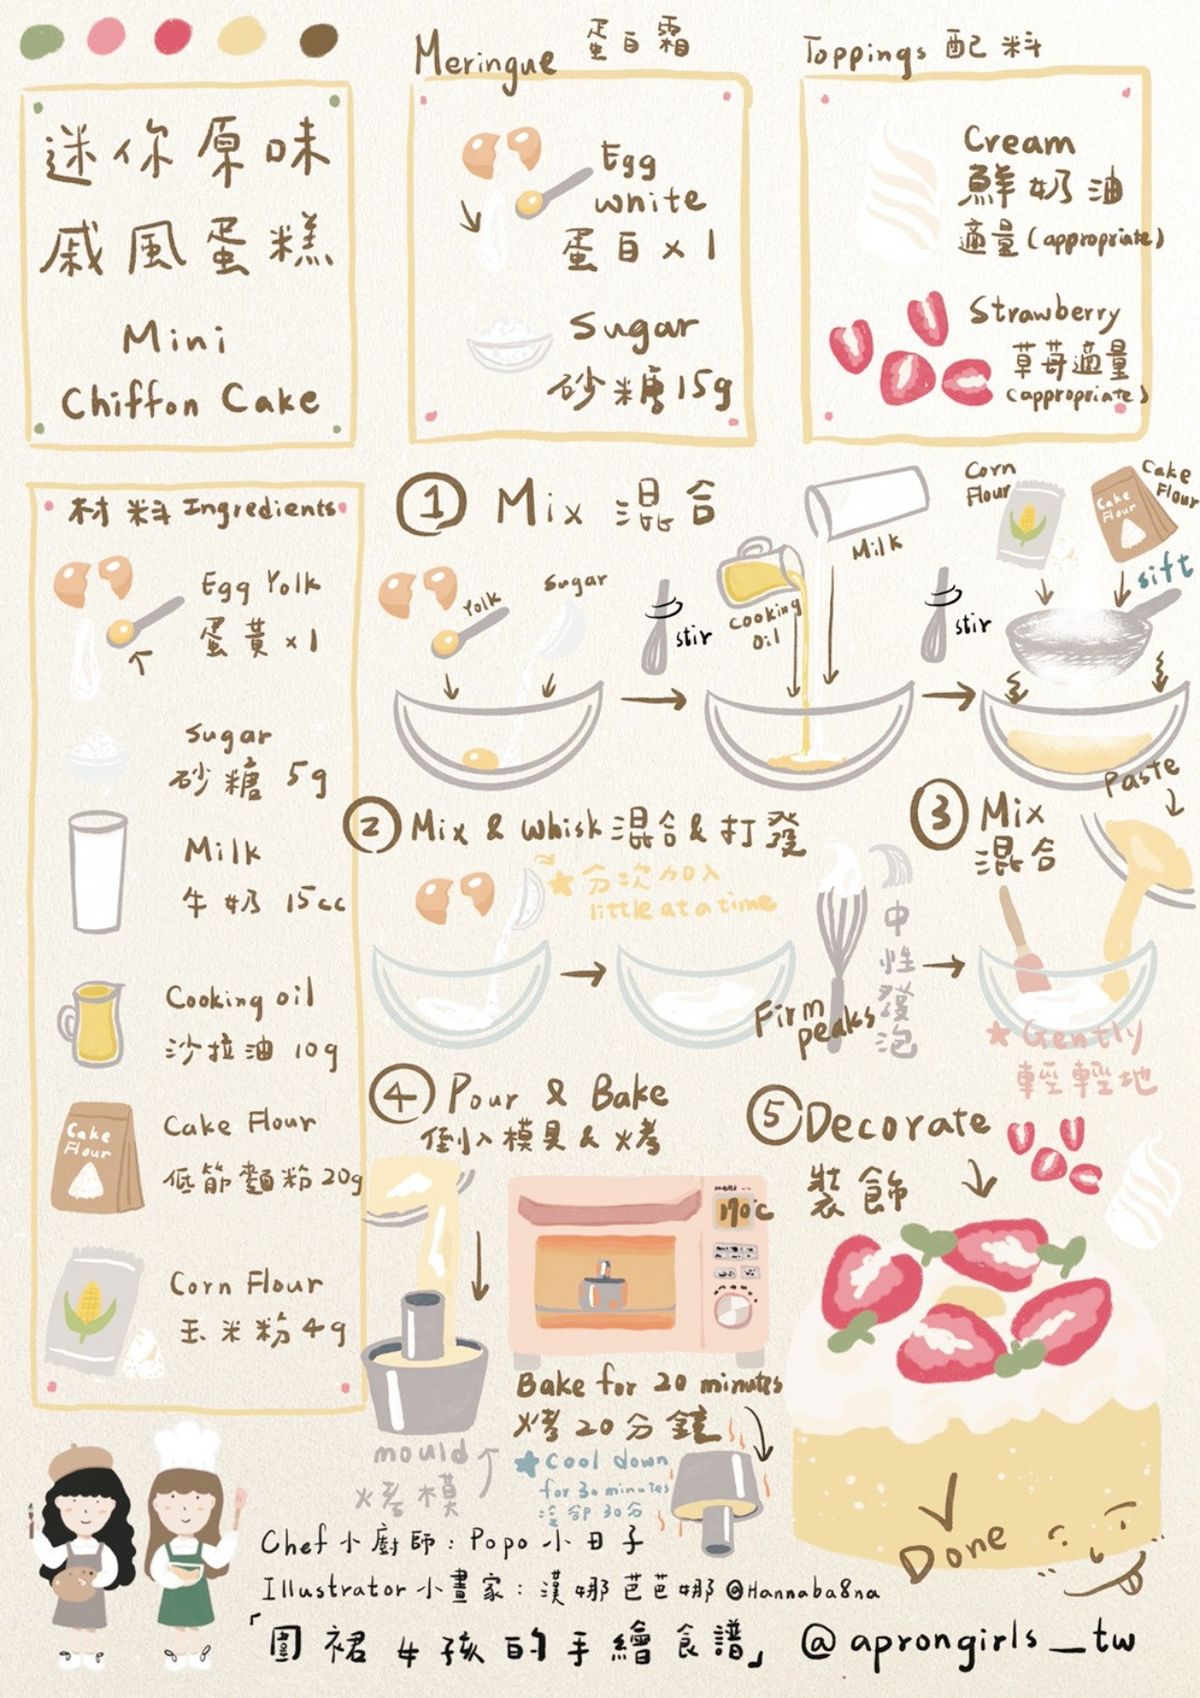 迷你原味
戚風蛋糕
Mini
Chiffon Cake
Meringue 蛋白霜
Egg
white
蛋白x1
Sugar
砂糖15g
Toppings 配料
Cream
鮮奶油
適量(appropriate)
Strawberry
草莓適量
(appropriate)
材料 Ingredients
Egg Yolk
蛋黃x1
Sugar
砂糖 5g
Milk
牛奶 15cc
Cooking oil
沙拉油 10g
Cake
Flour
Cake Flour
低筋麵粉 20g
Corn Flour
玉米粉 4g
① Mix 混合
Yolk
Sugar
stir
Cooking
oil
Milk
stir
Corn
Flour
Cake
Flour
Cake
Flour
sift
② Mix & Whisk 混合&打發
分次加入
little at a time
Firm
peaks
中性發泡
③ Mix
混合
Paste
Gently
輕輕地
④ Pour & Bake
倒入模具&烤
mould
烤模
170°C
Bake for 20 minutes
烤20分鐘
Cool down
for 30 minutes
冷卻30分
⑤ Decorate
裝飾
Done
Chef 小廚師：Popo 小日子
Illustrator 小畫家：漢娜芭芭娜 @Hannaba8na
「圍裙女孩的手繪食譜」 @aprongirls_tw